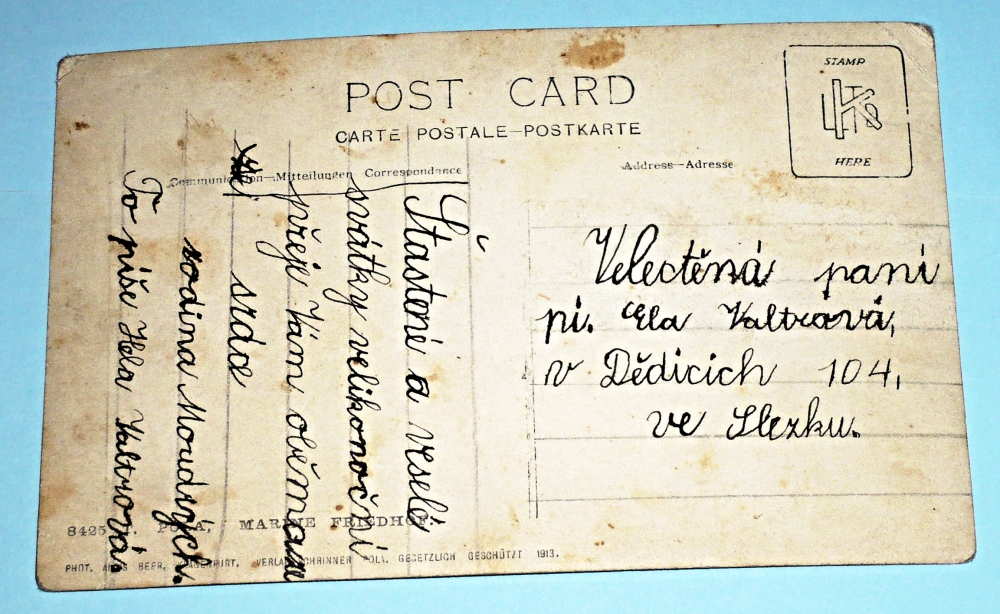 POST CARD
CARTE POSTALE-POSTKARTE
Communication-Mitteilungen Correspondance
Address-Adresse
STAMP
HERE
Šťastené a veselé
svátky velikonoční
přeje Vám oběmam
srdce
rodina Moudrých.
To píše Hela Valtrová.
Velectěná paní
pí. Ela Valtrová,
v Dědicich 104,
ve Slezku.
8425 POLA, MARINE FRIEDHOF.
PHOT. ALOIS BEER, VERLAG SCHRINNER POLA. GESETZLICH GESCHÜTZT 1913.